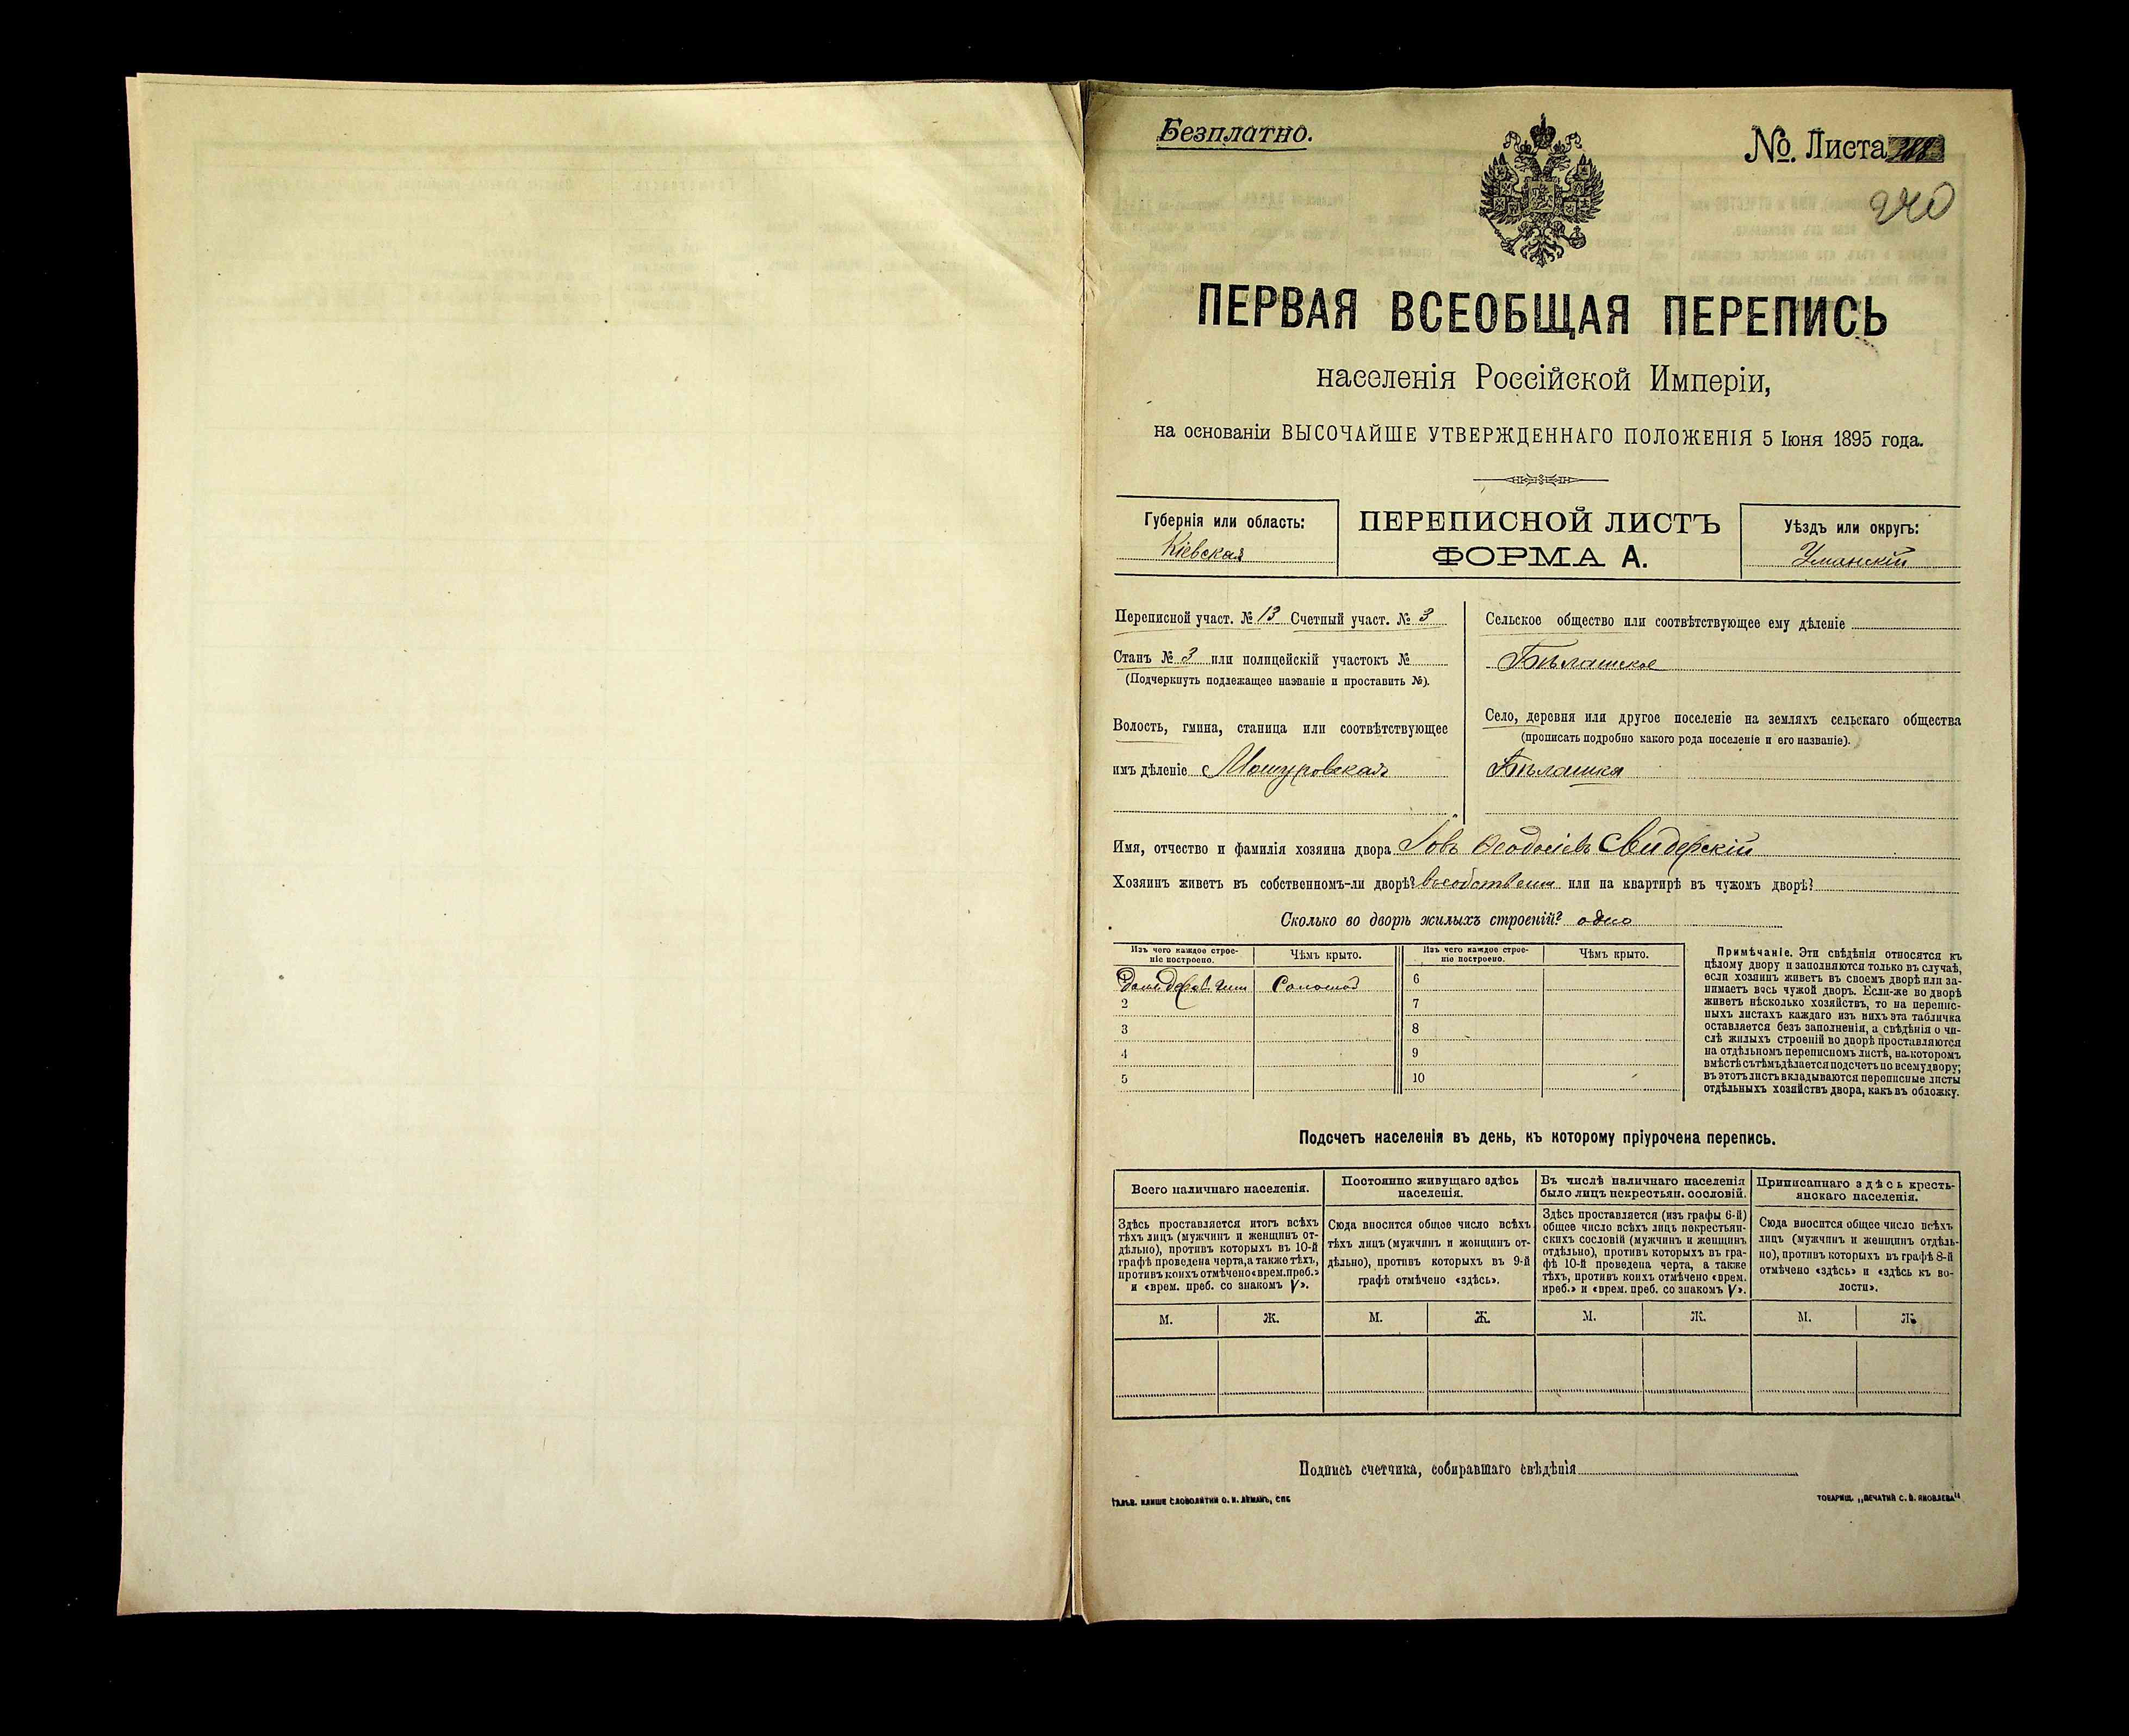 Безплатно.
№. Листа
240
ПЕРВАЯ ВСЕОБЩАЯ ПЕРЕПИСЬ
населенія Россійской Имперіи,
на основаніи ВЫСОЧАЙШЕ УТВЕРЖДЕННАГО ПОЛОЖЕНІЯ 5 Іюня 1895 года.
Губернія или область:
Кіевская
ПЕРЕПИСНОЙ ЛИСТЪ
ФОРМА А.
Уѣздъ или округъ:
Уманскій
Переписной участ. № 13 Счетный участ. № 3
Станъ № 3 или полицейскій участокъ №
(Подчеркнуть подлежащее названіе и проставить №).
Волость, гмина, станица или соотвѣтствующее
имъ дѣленіе Мошуровская
Сельское общество или соотвѣтствующее ему дѣленіе
Бѣлашское
Село, деревня или другое поселеніе на земляхъ сельскаго общества
(прописать подробно какого рода поселеніе и его названіе).
Бѣлашка
Имя, отчество и фамилія хозяина двора Іовъ Ѳеодосіевъ Свидерскій
Хозяинъ живетъ въ собственномъ-ли дворѣ? или на квартирѣ въ чужомъ дворѣ?
Сколько во дворѣ жилыхъ строеній? одно
Изъ чего каждое строе-
ніе построено.
Чѣмъ крыто.
Изъ чего каждое строе-
ніе построено.
Чѣмъ крыто.
Соломой
6
2
7
3
8
4
9
5
10
Примѣчаніе. Эти свѣдѣнія относятся къ
цѣлому двору и заполняются только въ случаѣ,
если хозяинъ живетъ въ своемъ дворѣ или за-
нимаетъ весь чужой дворъ. Если-же во дворѣ
живетъ нѣсколько хозяйствъ, то на перепис-
ныхъ листахъ каждаго изъ нихъ эта табличка
оставляется безъ заполненія, а свѣдѣнія о чи-
слѣ жилыхъ строеній во дворѣ проставляются
на отдѣльномъ переписномъ листѣ, на которомъ
вмѣстѣ съ тѣмъ дѣлается подсчетъ по всему двору;
въ этотъ листъ вкладываются переписные листы
отдѣльныхъ хозяйствъ двора, какъ въ обложку.
Подсчетъ населенія въ день, къ которому пріурочена перепись.
Всего наличнаго населенія.
Здѣсь проставляется итогъ всѣхъ
тѣхъ лицъ (мужчинъ и женщинъ от-
дѣльно), противъ которыхъ въ 10-й
графѣ проведена черта, а также тѣхъ,
противъ коихъ отмѣчено «врем. преб.»
и «врем. преб. со знакомъ V».
Постоянно живущаго здѣсь
населенія.
Сюда вносится общее число всѣхъ
тѣхъ лицъ (мужчинъ и женщинъ от-
дѣльно), противъ которыхъ въ 9-й
графѣ отмѣчено «здѣсь».
Въ числѣ наличнаго населенія
было лицъ некрестьян. сословій.
Здѣсь проставляется (изъ графы 6-й)
общее число всѣхъ лицъ некрестьян-
скихъ сословій (мужчинъ и женщинъ
отдѣльно), противъ которыхъ въ гра-
фѣ 10-й проведена черта, а также
тѣхъ, противъ коихъ отмѣчено «врем.
преб.» и «врем. преб. со знакомъ V».
Приписаннаго здѣсь кресть-
янскаго населенія.
Сюда вносится общее число всѣхъ
лицъ (мужчинъ и женщинъ отдѣль-
но), противъ которыхъ въ графѣ 8-й
отмѣчено «здѣсь» и «здѣсь къ во-
лости».
М. Ж. М. Ж. М. Ж. М. Ж.
Подпись счетчика, собиравшаго свѣдѣнія
ГАЛЬВ. КЛИШЕ СЛОВОЛИТНИ О. И. ЛЕМАНЪ, СПБ
ТОВАРИЩ. „ПЕЧАТНЯ С. П. ЯКОВЛЕВА"